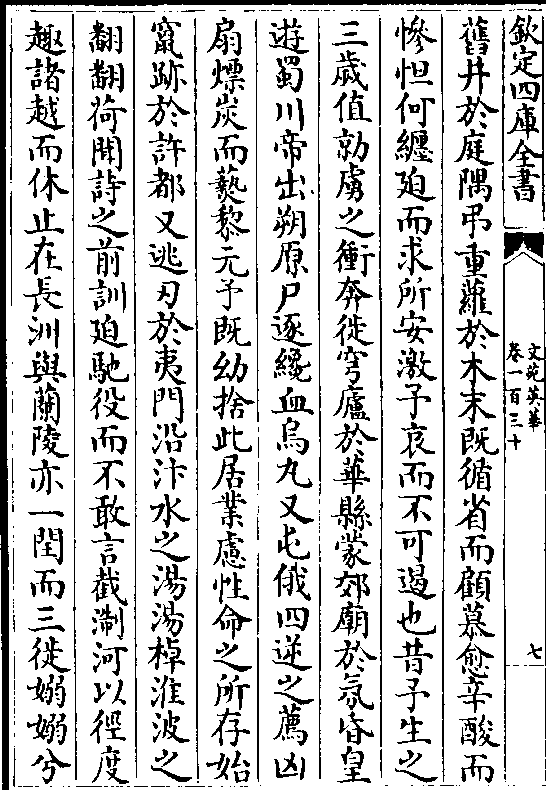 欽定四庫全書
文苑英華
卷一百三十
七
舊井於庭隅弔重蘿於木末既循省而顧慕愈辛酸而
慘怛何纏迫而求所安激予哀而不可遏也昔予生之
三歲值勍虜之衝奔徙穹廬於華縣蒙郊廟於氛昏皇
遊蜀川帝出朔原尸逐纔血烏丸又屯俄四逆之薦凶
扇熛炭而爇黎元予既幼捨此居業慮性命之所存始
竄跡於許都又逃刃於夷門沿汴水之湯湯棹淮波之
翻翻荷聞詩之前訓迫馳役而不敢言截淛河以徑度
趣諸越而休止在長洲與蘭陵亦一閏而三徙嫋嫋兮